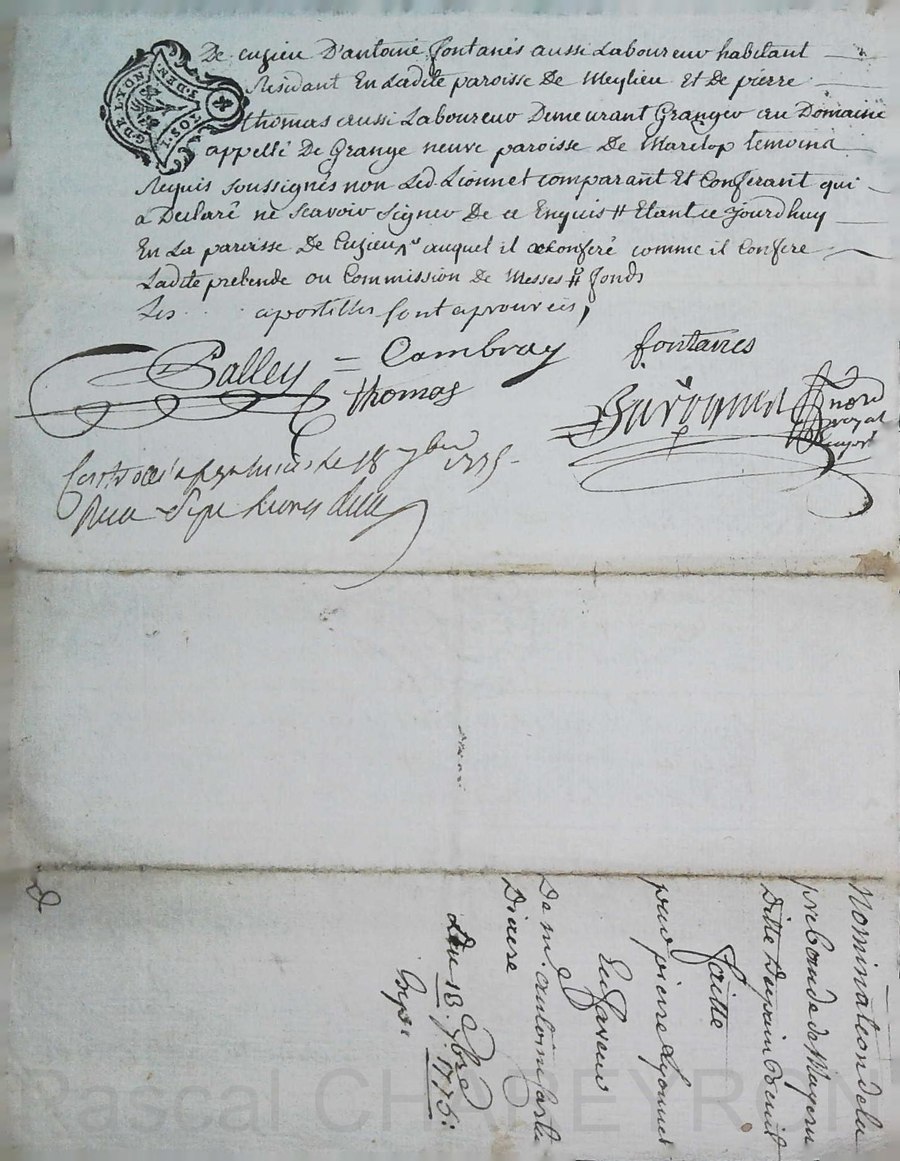 De cuzieu D'antoine fontanes aussi Laboureur habitant
Residant En Ladite paroisse De Meylieu Et De pierre
thomas aussi Laboureur Demeurant Granger au Domaine
appellé De Grange neuve paroisse De Marclop temoins
Requis soussignés non Led. Lionnet comparant Et Conferant qui
a Declaré ne scavoir signer De ce Enquis # Etant ce Jourdhuy
En La paroisse De Cuzieu auquel il a Conferé comme il Confere
Ladite prebende ou Commission de Messes # fonds
Les apostilles sont aprouvées,
G. DE LYON
Palley = Cambray fontanes
thomas
royal
le 18 7bre 1775
Nomination de la
prebande de
Ditte Du pain Benit
faitte
par pierre Lyonnet
En faveur
De mr. antoine
Diacre
Du 18. 7bre 1775.
Exp.
Pascal CHAREYRON